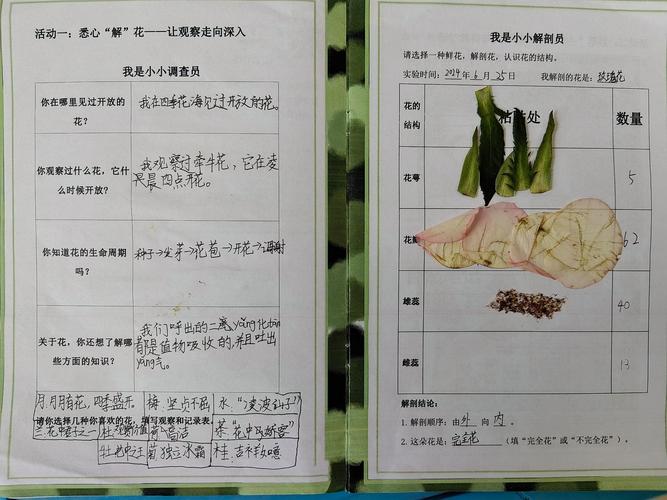 活动一：悉心“解”花——让观察走向深入
我是小小调查员
你在哪里见过开放的
花？
我在四季花海见过开放的花。
你观察过什么花，它什
么时候开放？
我观察过牵牛花，它在凌
晨四点开花。
你知道花的生命周期
吗？
种子→发芽→花苞→开花→凋谢
关于花，你还想了解哪
些方面的知识？
我们呼出的二氧yǎng化tàn
都是植物吸收的，并且吐出
yǎng气。
月月月有花，四季盛开。
梅：坚贞不屈
水：“凌波仙子”
请你选择几种你喜欢的花，填写观察和记录表。
兰：花中君子之一
高洁
茶“花中娇客”
牡
菊 独立冰霜
桂：吉祥
我是小小解剖员
请选择一种鲜花，解剖花，认识花的结构。
实验时间：2024年6月25日 我解剖的花是：玫瑰花
花的
结构
粘贴处
数量
花萼
5
花瓣
62
雄蕊
40
雌蕊
13
解剖结论：
1. 解剖顺序：由 外 向 内 。
2. 这朵花是：完全花 （填“完全花”或“不完全花”）。